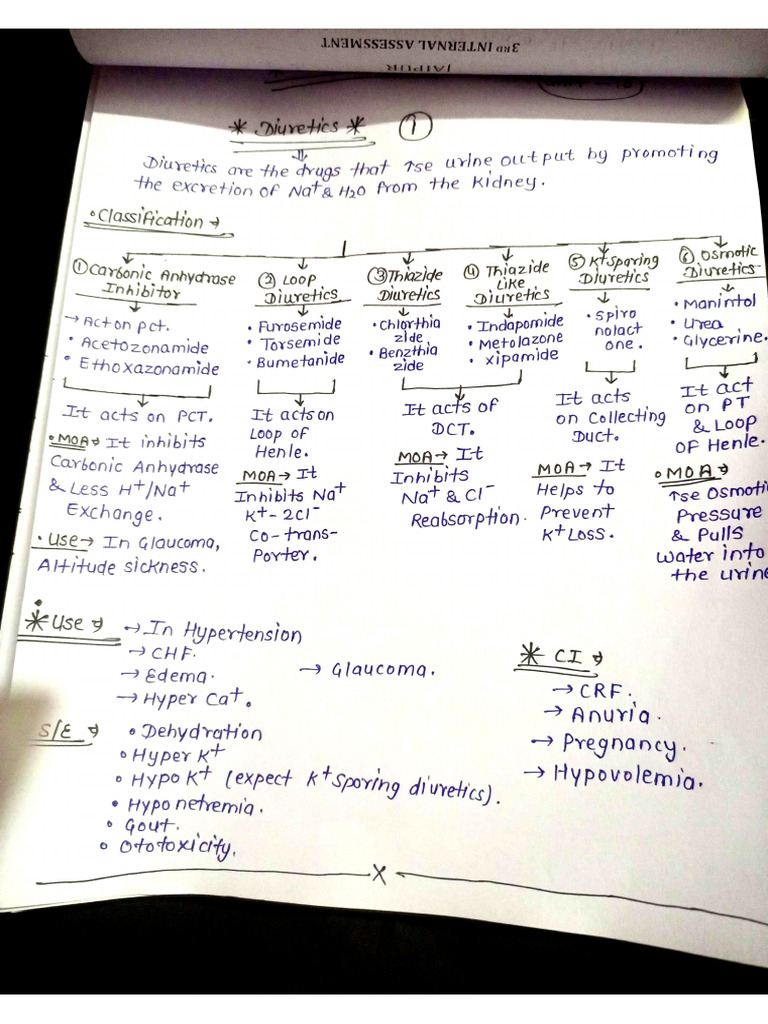 3RD INTERNAL ASSESSMENT
JAIPUR
* Diuretics * ①
Diuretics are the drugs that ↑se urine output by promoting
the excretion of Na+ & H2O from the kidney.
• Classification →
① Carbonic Anhydrase
Inhibitor
→ Act on pct.
• Acetozonamide
• Ethoxazonamide
It acts on PCT.
• MOA → It inhibits
Carbonic Anhydrase
& Less H+/Na+
Exchange.
• Use → In Glaucoma,
Altitude sickness.
② Loop
Diuretics
• Furosemide
• Torsemide
• Bumetanide
It acts on
Loop of
Henle.
MOA → It
Inhibits Na+
K+ - 2Cl-
Co-trans-
Porter.
③ Thiazide
Diuretics
• Chlorthia
zide
• Benzthia
zide
④ Thiazide
Like
Diuretics
• Indapomide
• Metolazone
• Xipamide
It acts of
DCT.
MOA → It
Inhibits
Na+ & Cl-
Reabsorption.
⑤ K+ Sparing
Diuretics
• Spiro
nolact
one.
It acts
on Collecting
Duct.
MOA → It
Helps to
Prevent
K+ Loss.
⑥ Osmotic
Diuretics
• Manintol
• Urea
• Glycerine.
It act
on PT
& Loop
of Henle.
• MOA →
↑se Osmoti
Pressure
& Pulls
water into
the urine
* Use → → In Hypertension
→ CHF.
→ Edema.
→ Hyper Ca+.
→ Glaucoma.
* CI →
→ CRF.
→ Anuria.
→ Pregnancy.
→ Hypovolemia.
S/E → • Dehydration
• Hyper K+
• Hypo K+ (expect K+ sporing diuretics).
• Hyponetremia.
• Gout.
• Ototoxicity.
X